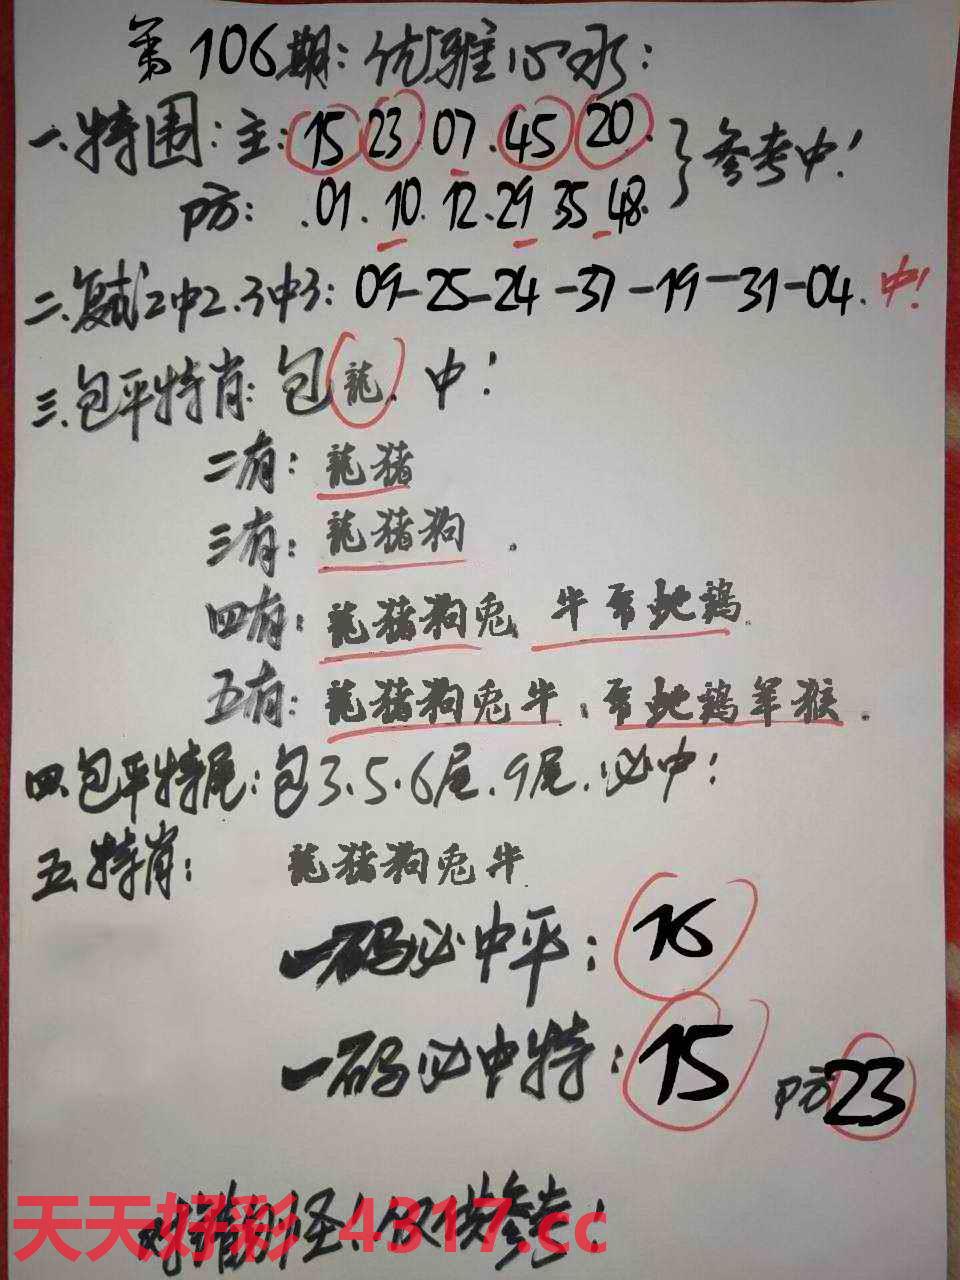 第106期:优雅心水:
一.特围:主:15 23 07.45 20. 参考中!
防:.01.10.12.29 35 48.
二.复试2中2.3中3:09-25-24-37-19-31-04.中!
三.包平特肖:包龍.中!
二有:龍猪
三有:龍猪狗.
四有:龍猪狗兎 牛虎蛇鶏.
五有:龍猪狗兎牛:虎蛇鶏羊猴.
四.包平特尾:包3.5.6尾.9尾.必中:
五.特肖:龍猪狗兎牛.
一码必中平:16
一码必中特:15 防23
对错勿怪!仅供参考!
天天好彩 4317.cc